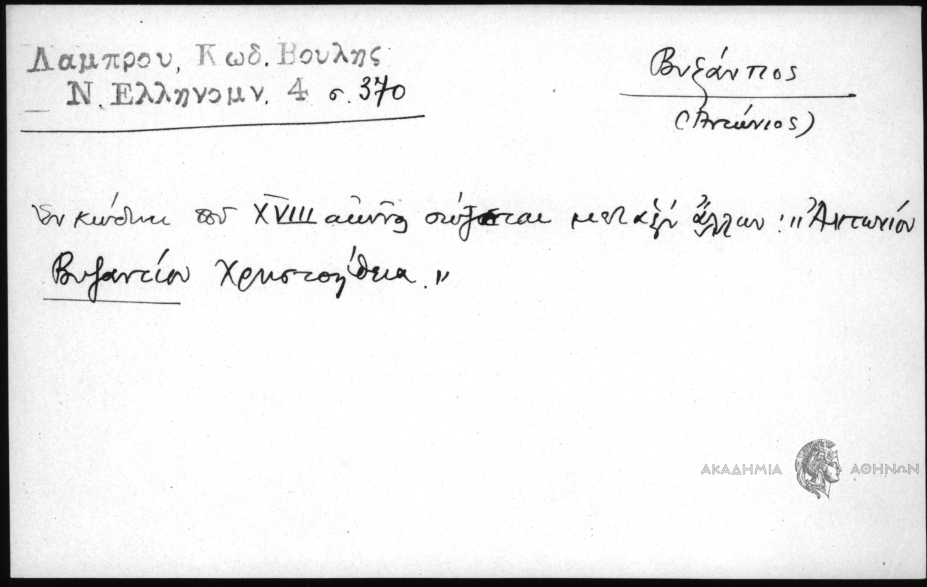 Λαμπρου, Κωδ. Βουλης
Ν. Ελληνομν. 4 σ. 370
Βυζάντιος
(Ἀντώνιος)
Ἐν κώδικι τοῦ XVIII αἰῶνος σώζεται μεταξὺ ἄλλων: "Ἀντωνίου
Βυζαντίου Χρηστοήθεια."
ΑΚΑΔΗΜΙΑ ΑΘΗΝΩΝ